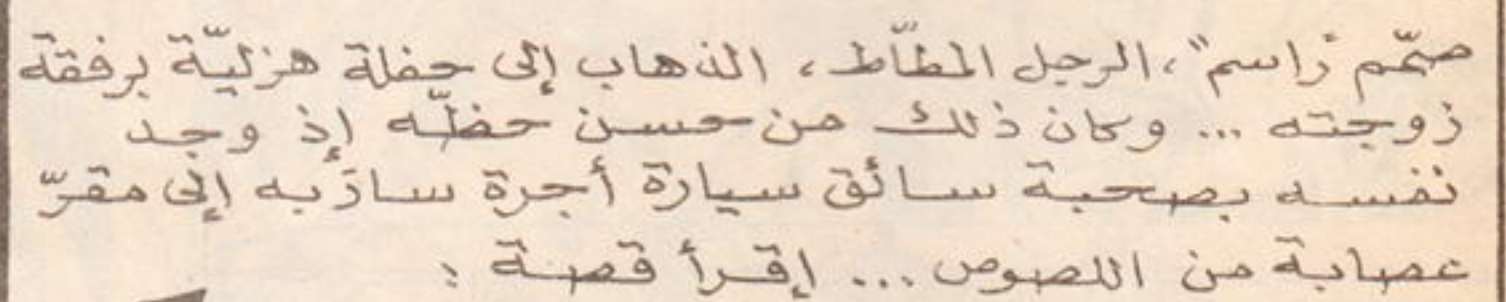 صمّم "راسم"، الرجل المطّاط، الذهاب إلى حفلة هزليّة برفقة
زوجته ... وكان ذلك من حسن حظّه إذ وجد
نفسه بصحبة سائق سيارة أجرة سارَ به إلى مقرّ
عصابة من اللصوص ... إقرأ قصة :